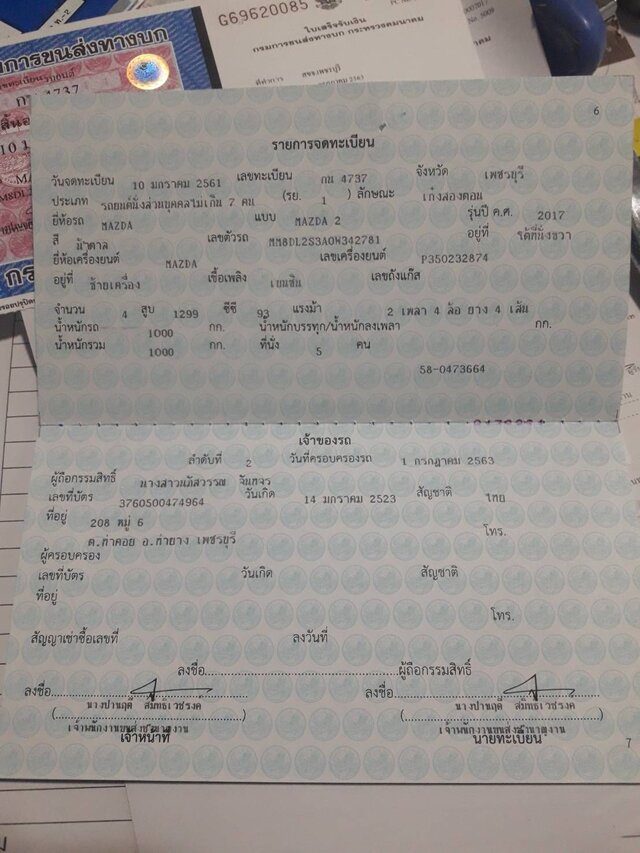 G69620085
ใบเสร็จรับเงิน
กรมการขนส่งทางบก กระทรวงคมนาคม
4737
6
รายการจดทะเบียน
วันจดทะเบียน 10 มกราคม 2561 เลขทะเบียน กน 4737 จังหวัด เพชรบุรี
ประเภท รถยนต์นั่งส่วนบุคคลไม่เกิน 7 คน (รย. 1 ) ลักษณะ เก๋งสองตอน
ยี่ห้อรถ MAZDA แบบ MAZDA 2 รุ่นปี ค.ศ. 2017
สี น้ำตาล เลขตัวรถ MM8DL2S3A0W342781 อยู่ที่ ใต้ที่นั่งขวา
ยี่ห้อเครื่องยนต์ MAZDA เลขเครื่องยนต์ P350232874
อยู่ที่ ซ้ายเครื่อง เชื้อเพลิง เบนซิน เลขถังแก๊ส
จำนวน 4 สูบ 1299 ซีซี 93 แรงม้า 2 เพลา 4 ล้อ ยาง 4 เส้น
น้ำหนักรถ 1000 กก. น้ำหนักบรรทุก/น้ำหนักลงเพลา กก.
น้ำหนักรวม 1000 กก. ที่นั่ง 5 คน
58-0473664
เจ้าของรถ
ลำดับที่ 2 วันที่ครอบครองรถ 1 กรกฎาคม 2563
ผู้ถือกรรมสิทธิ์ นางสาวมนัสวรรณ
เลขที่บัตร 3760500474964 วันเกิด 14 มกราคม 2523 สัญชาติ ไทย
ที่อยู่ 208 หมู่ 6 โทร.
ต.ท่าคอย อ.ท่ายาง เพชรบุรี
ผู้ครอบครอง
เลขที่บัตร วันเกิด สัญชาติ
ที่อยู่
โทร.
สัญญาเช่าซื้อเลขที่ ลงวันที่
ลงชื่อ ผู้ถือกรรมสิทธิ์
ลงชื่อ ลงชื่อ
เจ้าหน้าที่ นายทะเบียน
7